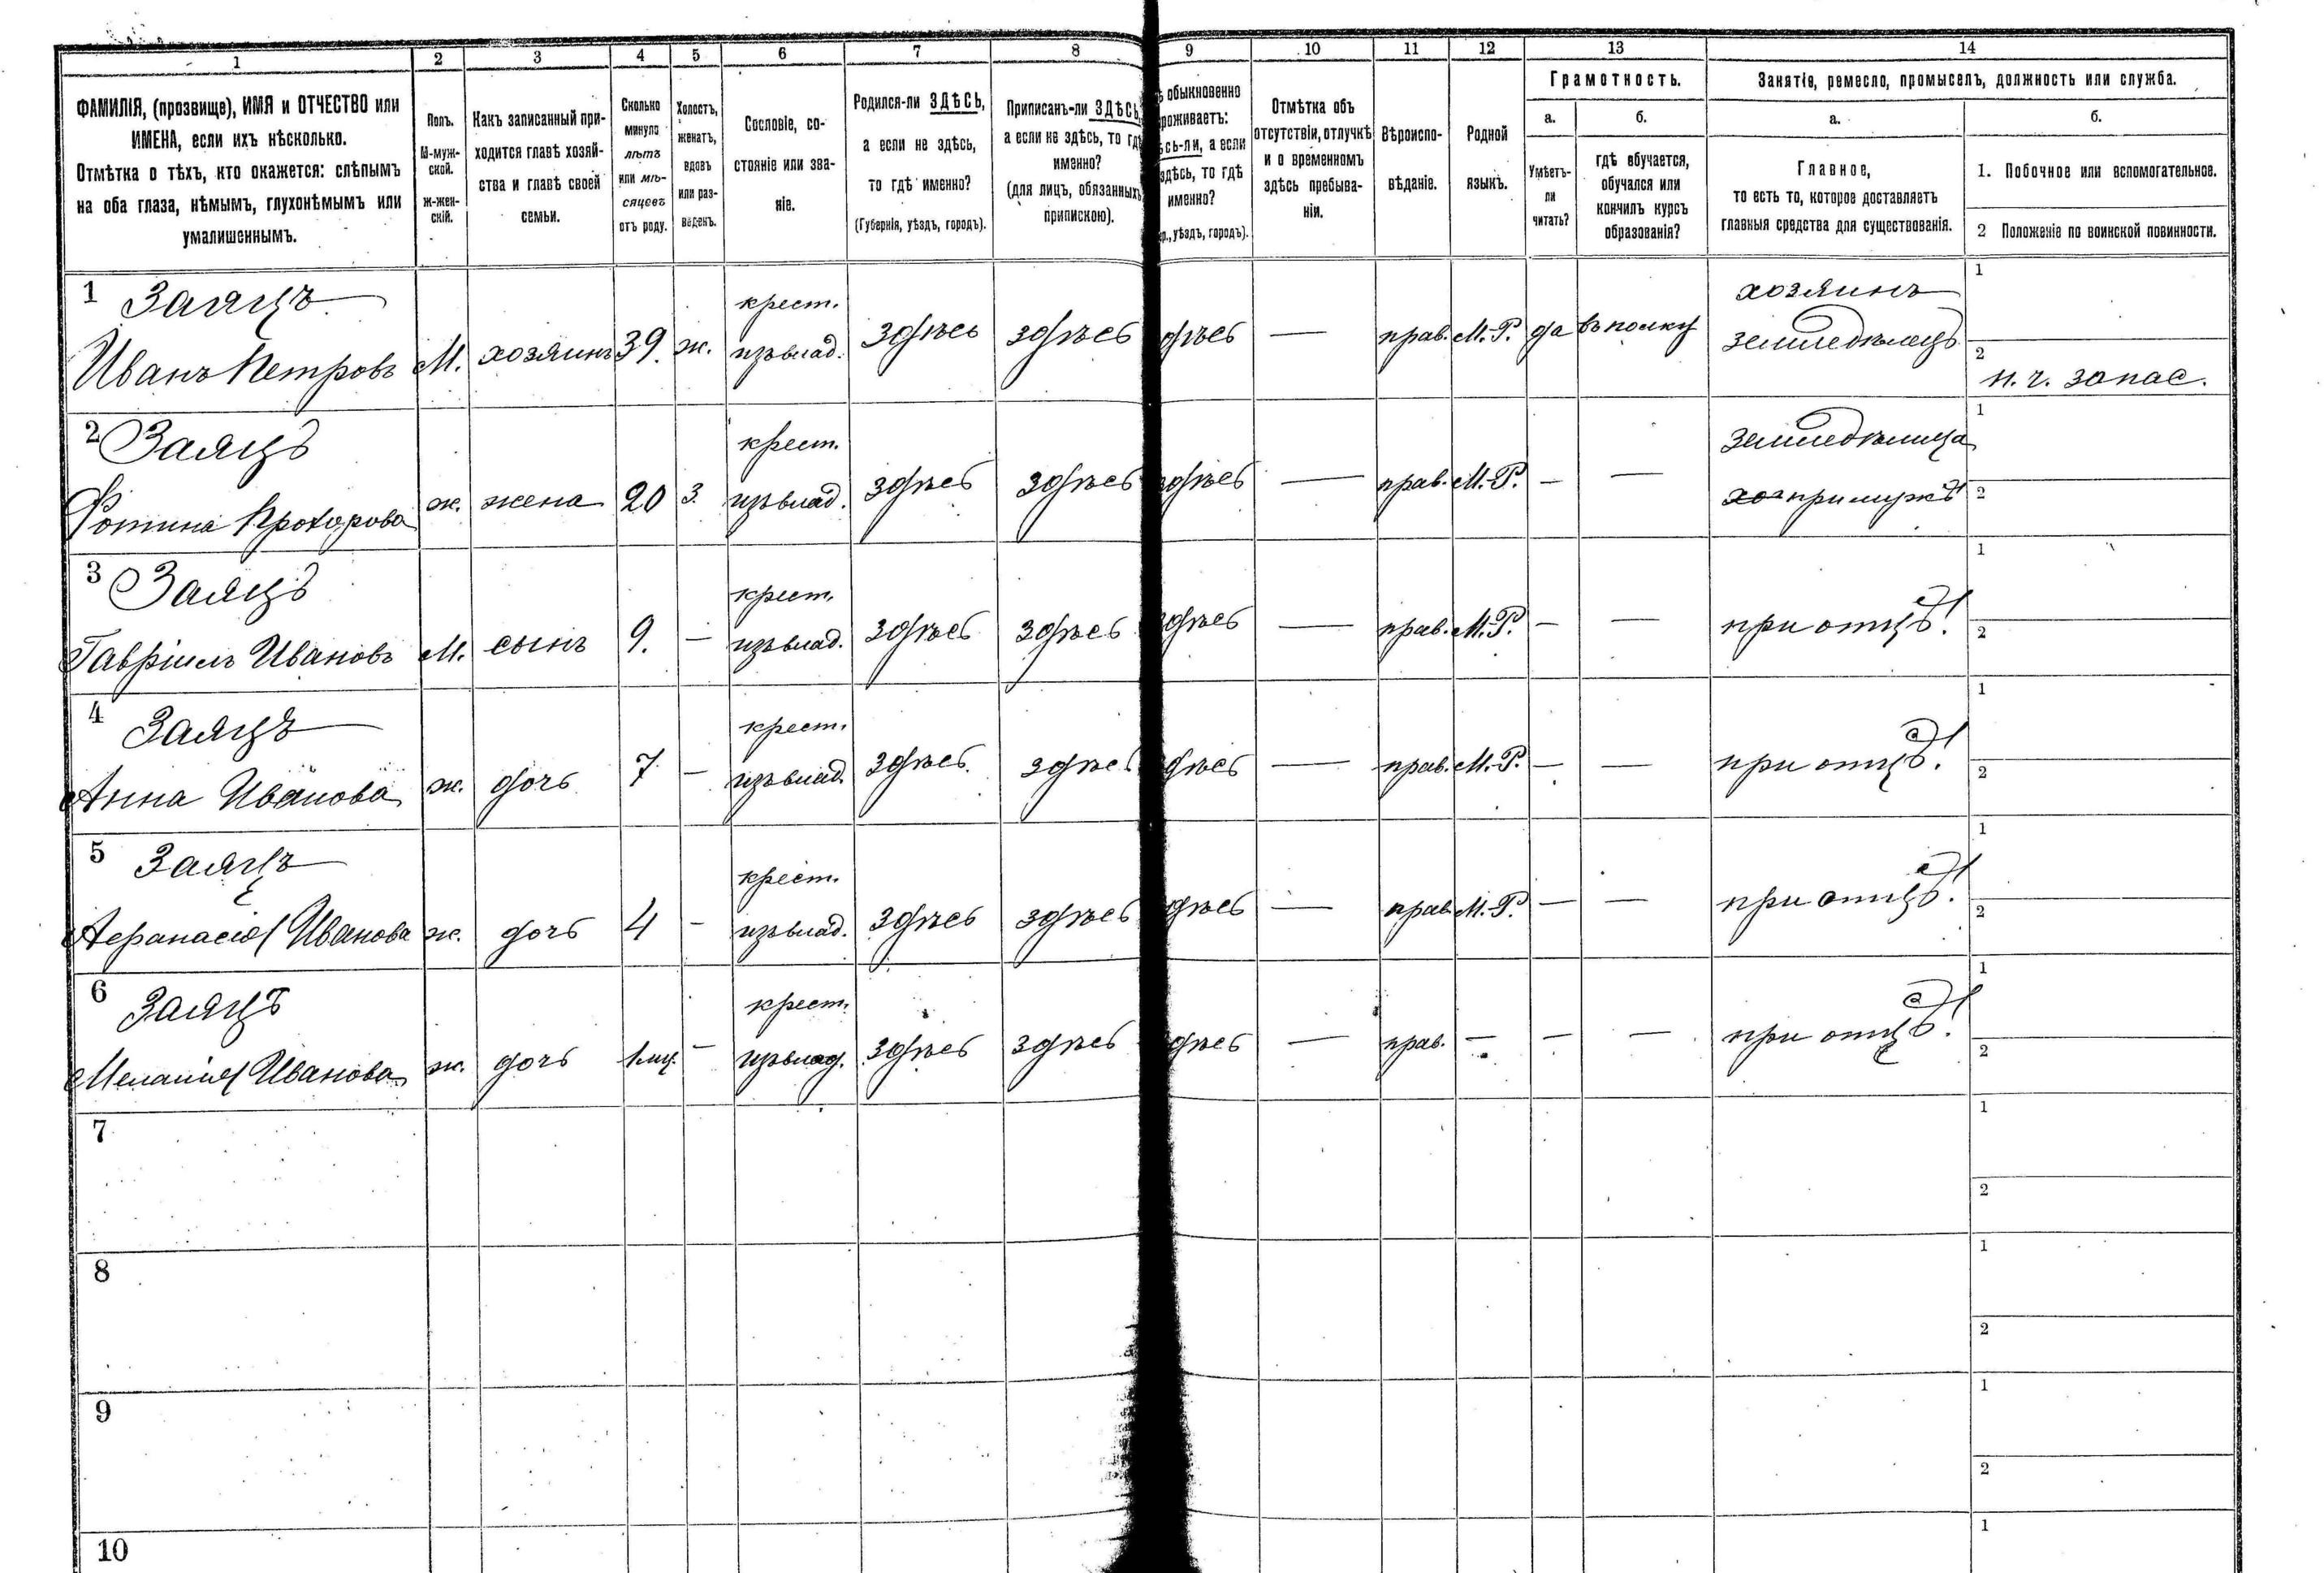 1 2 3 4 5 6 7 8 9 10 11 12 13 14
ФАМИЛІЯ, (прозвище), ИМЯ и ОТЧЕСТВО или
ИМЕНА, если ихъ нѣсколько.
Отмѣтка о тѣхъ, кто окажется: слѣпымъ
на оба глаза, нѣмымъ, глухонѣмымъ или
умалишеннымъ.
Полъ.
М-муж-
ской.
ж-жен-
скій.
Какъ записанный при-
ходится главѣ хозяй-
ства и главѣ своей
семьи.
Сколько
минуло
лѣтъ
или мѣ-
сяцевъ
отъ роду.
Холостъ,
женатъ,
вдовъ
или раз-
веденъ.
Сословіе, со-
стояніе или зва-
ніе.
Родился-ли ЗДѢСЬ,
а если не здѣсь,
то гдѣ именно?
(Губернія, уѣздъ, городъ).
Приписанъ-ли ЗДѢСЬ,
а если не здѣсь, то гдѣ
именно?
(для лицъ, обязанныхъ
припискою).
обыкновенно
роживаетъ:
сь-ли, а если
здѣсь, то гдѣ
именно?
р., уѣздъ, городъ).
Отмѣтка объ
отсутствіи, отлучкѣ
и о временномъ
здѣсь пребыва-
ніи.
Вѣроиспо-
вѣданіе.
Родной
языкъ.
Грамотность.
а.
Умѣетъ-
ли
читать?
б.
гдѣ обучается,
обучался или
кончилъ курсъ
образованія?
Занятіе, ремесло, промыселъ, должность или служба.
а.
Главное,
то есть то, которое доставляетъ
главныя средства для существованія.
б.
1. Побочное или вспомогательное.
2 Положеніе по воинской повинности.
1 Заяцъ
Иванъ Петровъ М. хозяинъ 39. ж.
крест.
изъ влад.
здѣсь здѣсь дѣсь — прав. М.-Р. да въ полку
хозяинъ
земледѣлецъ
1
2
н. ч. запас.
2 Заяцъ
Фотина Прохорова ж. жена 20 з.
крест.
изъ влад.
здѣсь здѣсь здѣсь — прав. М.-Р. — —
земледѣлица
при мужѣ
1
2
3 Заяцъ
Гавріилъ Ивановъ М. сынъ 9. —
крест.
изъ влад.
здѣсь здѣсь здѣсь — прав. М.-Р. — —
при отцѣ!
1
2
4 Заяцъ
Анна Иванова ж. дочь 7 —
крест.
изъ влад.
здѣсь здѣсь дѣсь — прав. М.-Р. — —
при отцѣ!
1
2
5 Заяцъ
Афанасія Иванова ж. дочь 4 —
крест.
изъ влад.
здѣсь здѣсь дѣсь — прав М.-Р. — —
при отцѣ!
1
2
6 Заяцъ
Меланія Иванова ж. дочь 1 мц. —
крест.
изъ влад.
здѣсь здѣсь дѣсь — прав. — — —
при отцѣ!
1
2
7
1
2
8
1
2
9
1
2
10
1